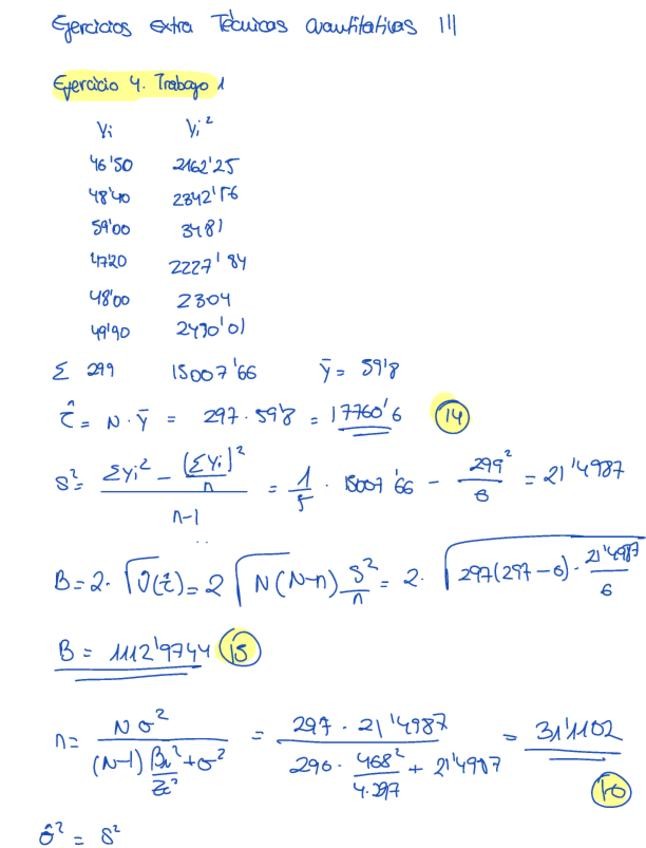 Ejercicios extra Técnicas cuantitativas III
Ejercicio 4. Trabajo 1
Yi Yi²
46'50 2162'25
48'40 2342'56
59'00 3481
47'20 2227'84
48'00 2304
49'90 2490'01
Σ 299 15007'66 ȳ = 59'8
τ̂ = N · ȳ = 297 · 59'8 = 17760'6 (14)
S² = (ΣYi² − (ΣYi)²/n) / (n−1) = 1/5 · 15007'66 − 299²/6 = 21'4987
B = 2 · √V̂(τ̂) = 2 √(N(N−n) S²/n) = 2 · √(297(297−6) · 21'4987/6)
B = 1112'9744 (15)
n = Nσ² / ((N−1) B²/z² + σ²) = 297 · 21'4987 / (296 · 468²/(4·297) + 21'4987) = 31'1102
σ̂² = S²